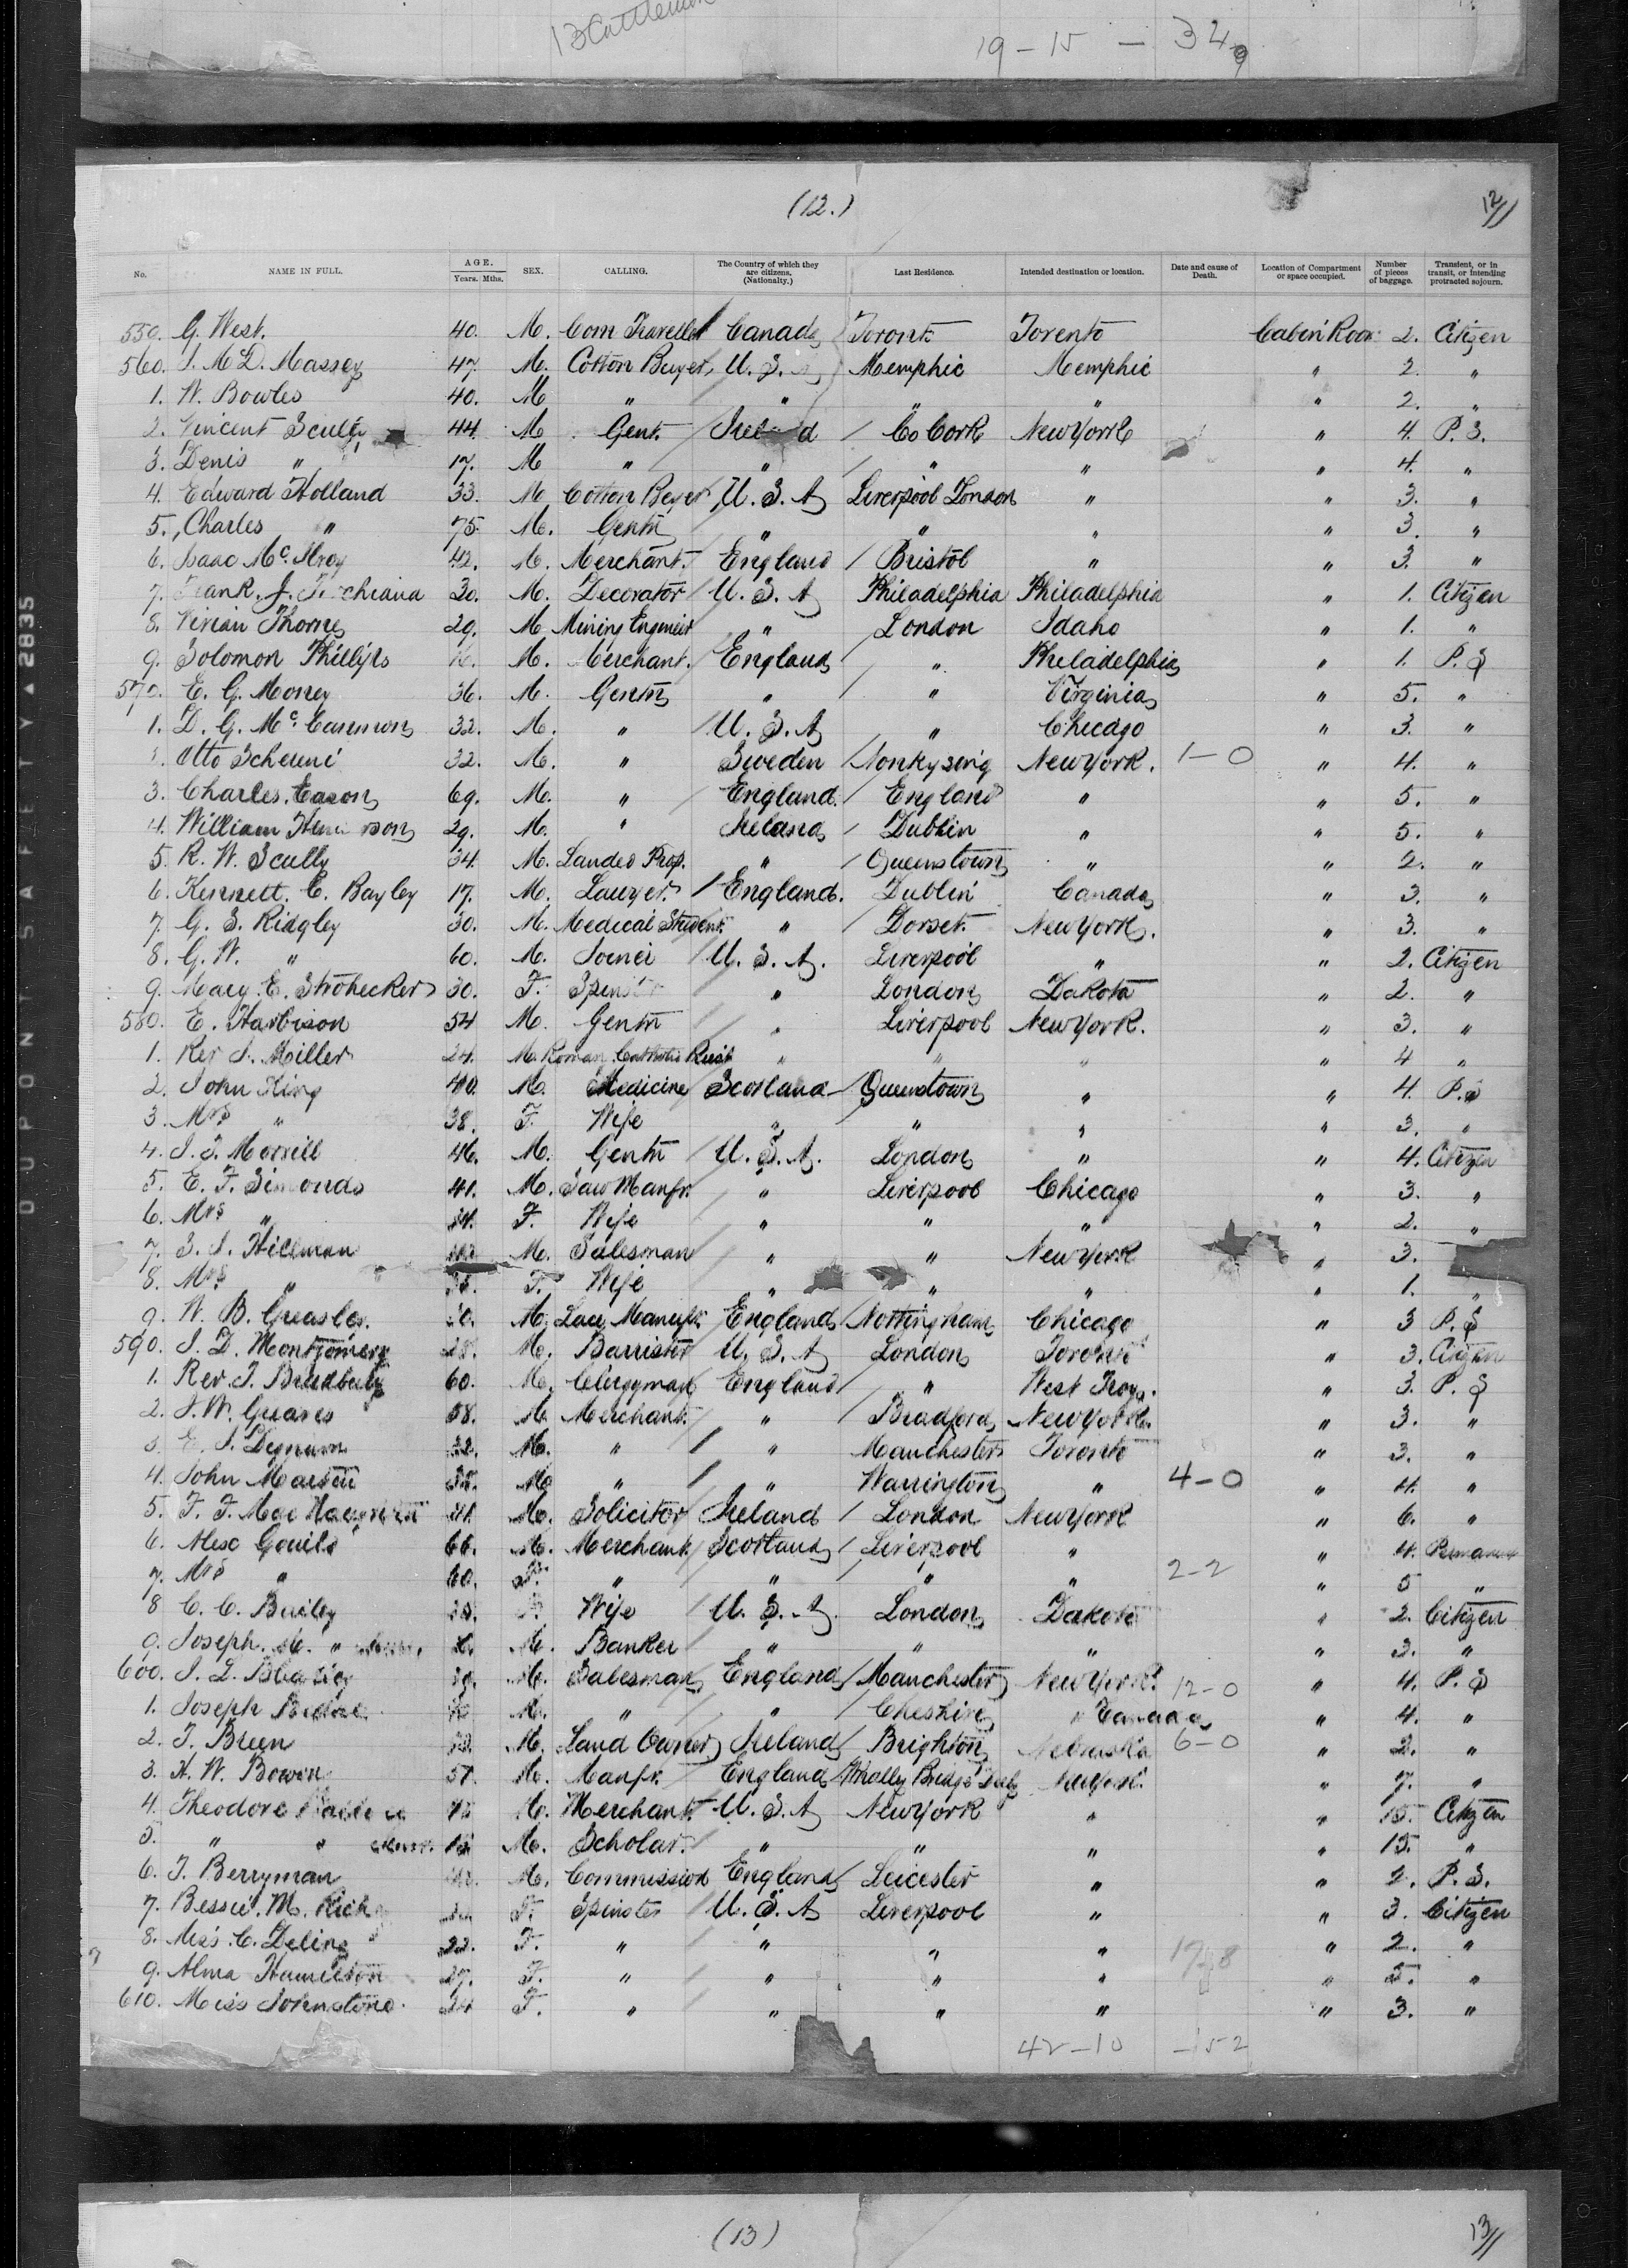 13 Cattlemen
19 - 15 - 349
(12.)
12/11
No. NAME IN FULL. AGE. Years. Mths. SEX. CALLING. The Country of which they are citizens, (Nationalty.) Last Residence. Intended destination or location. Date and cause of Death. Location of Compartment or space occupied. Number of pieces of baggage. Transient, or in transit, or intending protracted sojourn.
559. G. West. 40. M. Com Traveller Canada Toronto Toronto Cabin Room 2. Citizen
560. J. M D. Massey 47. M. Cotton Buyer U. S. A Memphic Memphic " 2. "
1. W. Bowles 40. M " " " " " 2. "
2. Vincent Scully 44. M Gent. Ireland Co Cork New York " 4. P. S.
3. Denis " 17. M " " " " " 4. "
4. Edward Holland 33. M Cotton Buyer U. S. A Liverpool London " " 3. "
5. Charles " 75. M. Gentn " " " " 3. "
6. Isaac Mc Ilroy 42. M. Merchant. England Bristol " " 3. "
7. Frank. J. 30. M. Decorator U. S. A Philadelphia Philadelphia " 1. Citizen
8. Vivian Thorne 29. M Mining Engineer " London Idaho " 1. "
9. Solomon Phillips M. Merchant. England " Philadelphia " 1. P. S
570. E. G. Money 36. M. Gentn " " Virginia " 5. "
1. D. G. Mc Cammon 32. M. " U. S. A " Chicago " 3. "
Otto Scheuni 32. M. " Sweden Nonkysing New York. 1-0 " 4. "
3. Charles. Eason 69. M. " England. England " " 5. "
4. William 29. M. " Ireland Dublin " " 5. "
5. R. W. Scully 34. M. Landed Prop. " Queenstown " " 2. "
6. Kennett. C. Bayley 17. M. Lawyer England. Dublin Canada " 3. "
7. G. S. Ridgley 30. M. Medical Student. " Dorset. New York. " 3. "
8. G. W. " 60. M. U. S. A. Liverpool " " 2. Citizen
9. Mary. E. Strohecker 30. F. Spinster " London Dakota " 2. "
580. E. Harbison 54 M. Gentn " Liverpool New York. " 3. "
1. Rev J. Miller 24. M. Roman Catholic Priest " " " " 4 "
2. John King 40. M. Medicine Scotland Queenstown " " 4. P. S
3. Mrs " 38. F. Wife " " " " 3. "
4. J. J. Morrill 46. M. Gentn U. S. A. London " " 4. Citizen
5. E. F. Simonds 41. M. Saw Manfr. " Liverpool Chicago " 3. "
6. Mrs " F. Wife " " " " 2. "
7. S. J. Hillman M. Salesman " " New York " 3.
8. Mrs " F. Wife " " " " 1. "
9. W. B. Greasley. M. Lace Manufr. England Nottingham Chicago " 3 P. S
590. J. D. Montgomery M. Barrister U. S. A London Toronto " 3. Citizen
1. Rev. J. Bradbury 60. M. Clergyman England " West Troy. " 3. P. S
2. J. W. Greaves 58. M. Merchant. " Bradford New York. " 3. "
3. E. J. Dignum 32. M. " " Manchester Toronto " 3. "
4. John Martin M " " Warrington " 4-0 " 4. "
5. F. F. 41. M. Solicitor Ireland London New York " 6. "
6. Alex Gouild 66. M. Merchant. Scotland Liverpool " " 4. Permanent
7. Mrs " 60. F. " " " " 2-2 " 5 "
8 C. C. Bailey F. Wife U. S. A. London Dakota " 2. Citizen
9. Joseph. M. " M. Banker " " " " 3. "
600. J. L. M. Salesman England Manchester New York. 12-0 " 4. P. S
1. Joseph M. " " Cheshire " Canada " 4. "
2. J. Breen M. Land Owner Ireland Brighton Nebraska 6-0 " 2. "
3. H. W. Bowen 51. M. Manfr. England Whalley Bridge New York. " 7. "
4. Theodore M. Merchant. U. S. A New York " " 15. Citizen
5. " " M. Scholar. " " " " 15. "
6. J. Berryman M. Commission England Leicester " " 2. P. S.
7. Bessie. M. Rich F. Spinster U. S. A Liverpool " " 3. Citizen
8. Miss. C. Deling 22. F. " " " " " 2. "
9. Alma Hamilton 27. F. " " " " 17-8 " 5. "
610. Miss Johnstone. 24 F. " " " " " 3. "
42-10 -152
(13)
13/11
DUPONT SAFETY ▲ 2835